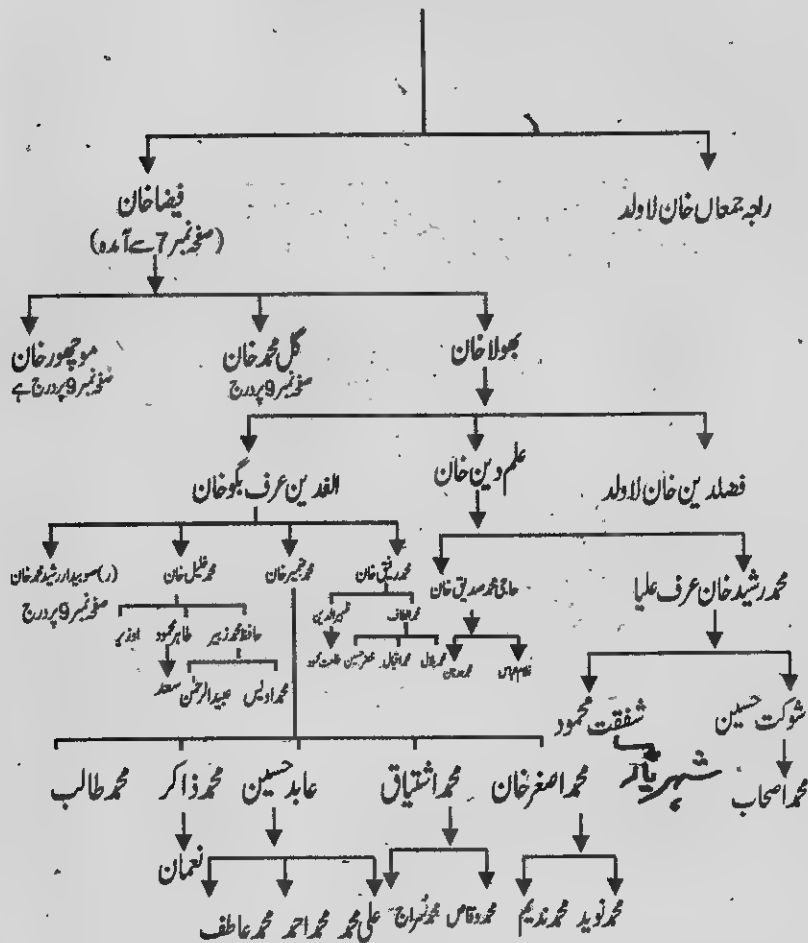 راجہ جمعاں خان لاولد
فیضا خان
(صفحہ نمبر 7 سے آمدہ)
بھولا خان
گل محمد خان
صفحہ نمبر 9 پر درج
موچھور خان
صفحہ نمبر 9 پر درج ہے
فضلدین خان لاولد
علم دین خان
الفدین عرف بگو خان
محمد رشید خان عرف علیا
حاجی محمد صدیق خان
محمد رفیق خان
محمد ضمیر خان
محمد خلیل خان
(ر) صوبیدار رشید محمد خان
صفحہ نمبر 9 پر درج
محمد الطاف
ظہیر الدین
حافظ محمد زبیر
طاہر محمود
اوزیر
محمد بلال
محمد اقبال
طلعت محمود
محمد اویس
عبید الرحمٰن
سعد
شوکت حسین
شفقت محمود
محمد اصحاب
شہریار
محمد اصغر خان
محمد اشتیاق
عابد حسین
محمد ذاکر
محمد طالب
نعمان
محمد نوید
محمد ندیم
محمد وقاص
محمد سراج
علی محمد
محمد احمد
محمد عاطف